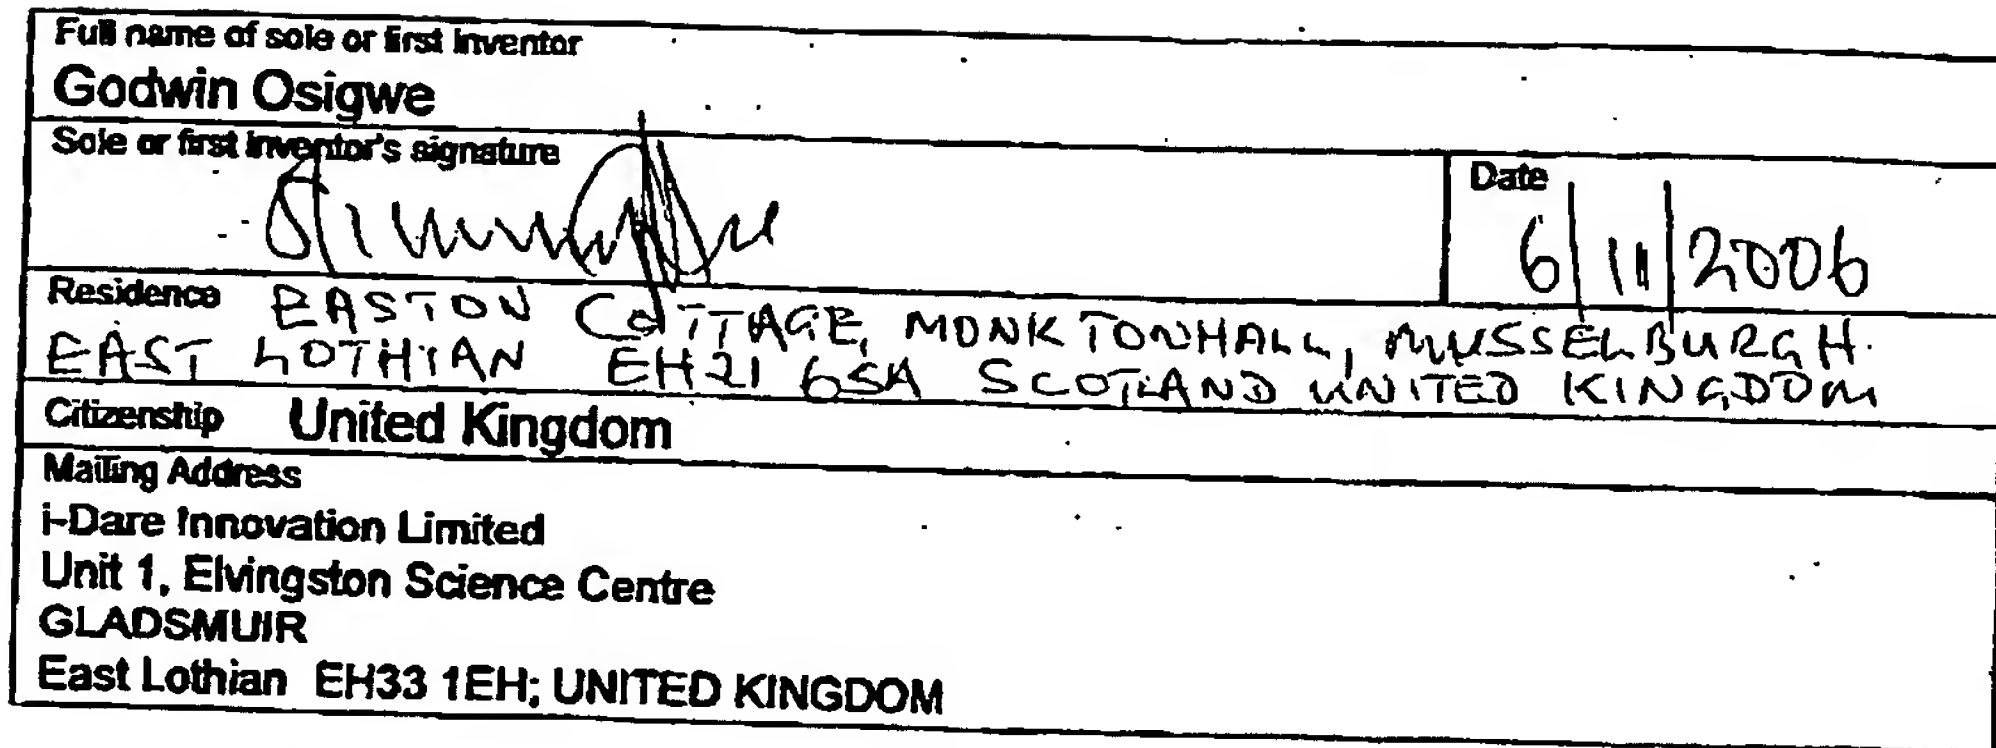 Full name of sole or first inventor
Godwin Osigwe
Sole or first inventor's signature
Date
6/11/2006
Residence EASTON COTTAGE, MONKTONHALL, MUSSELBURGH.
EAST LOTHIAN EH21 6SA SCOTLAND UNITED KINGDOM
Citizenship United Kingdom
Mailing Address
i-Dare Innovation Limited
Unit 1, Elvingston Science Centre
GLADSMUIR
East Lothian EH33 1EH; UNITED KINGDOM